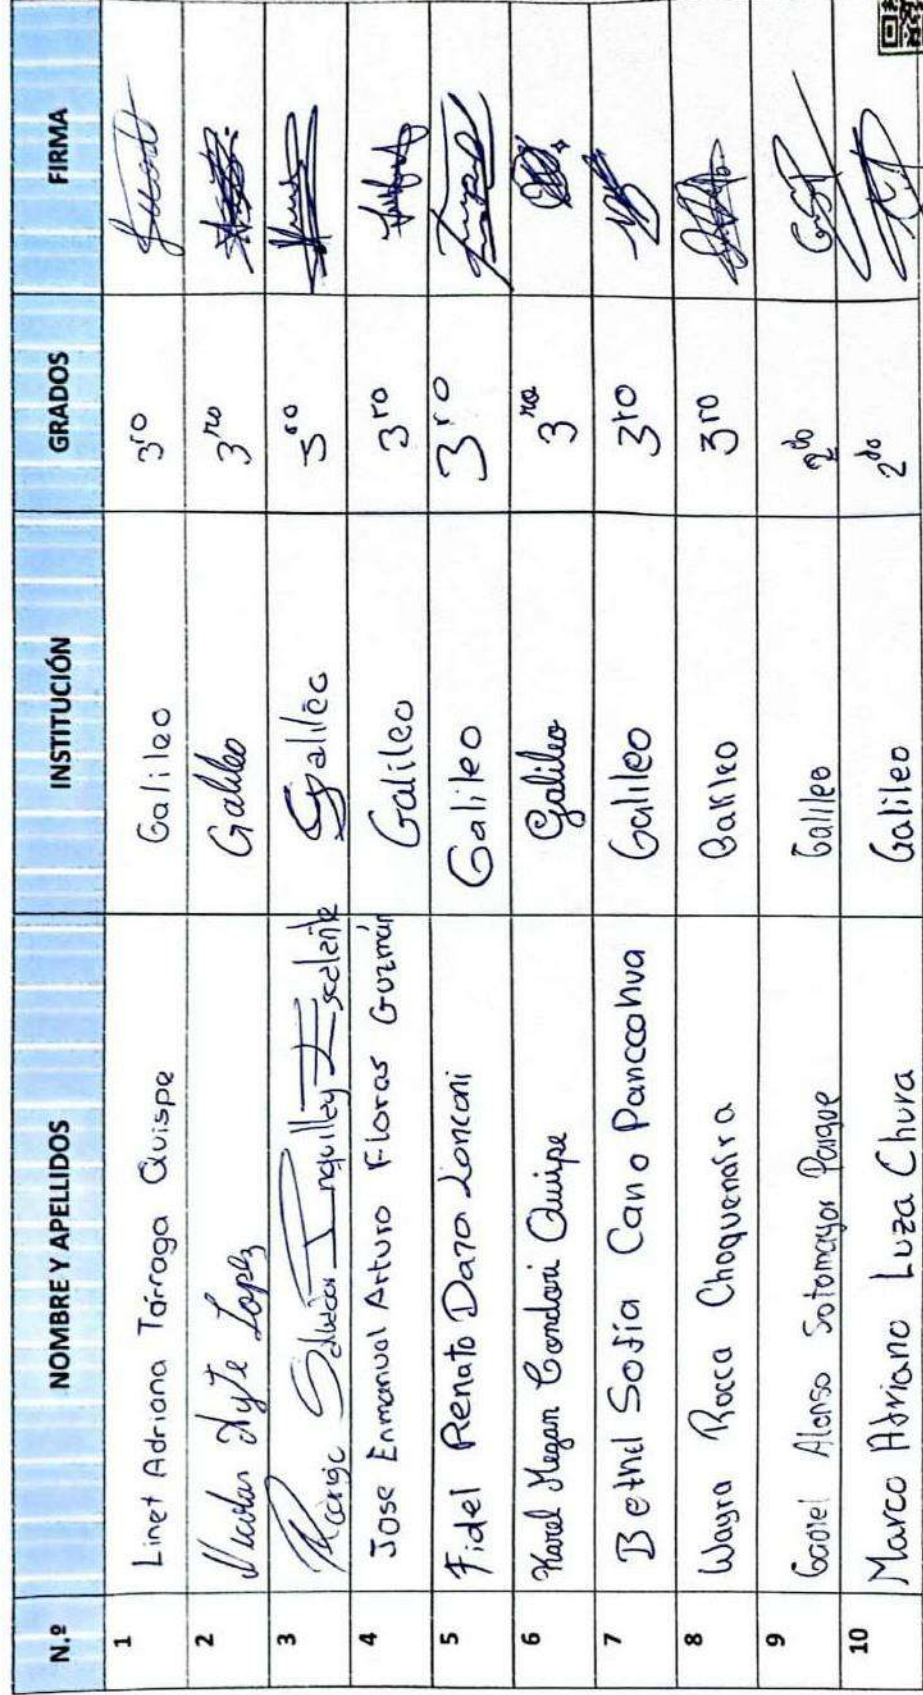 N.º NOMBRE Y APELLIDOS INSTITUCIÓN GRADOS FIRMA
1 Linet Adriana Tarraga Quispe Galileo 3ro
2 Nicolas Ayte Lopez Galileo 3ro
3 Inquilley Escalante Galileo 3ro
4 Jose Enmanuel Arturo Flores Guzmán Galileo 3ro
5 Fidel Renato Dazo Lonconi Galileo 3ro
6 Karol Megan Condori Quipe Galileo 3ro
7 Bethel Sofia Cano Panccahua Galileo 3ro
8 Wayra Rocca Choquenaira Galileo 3ro
9 Gabriel Alonso Sotomayor Galileo 2do
10 Marco Adriano Luza Chura Galileo 2do